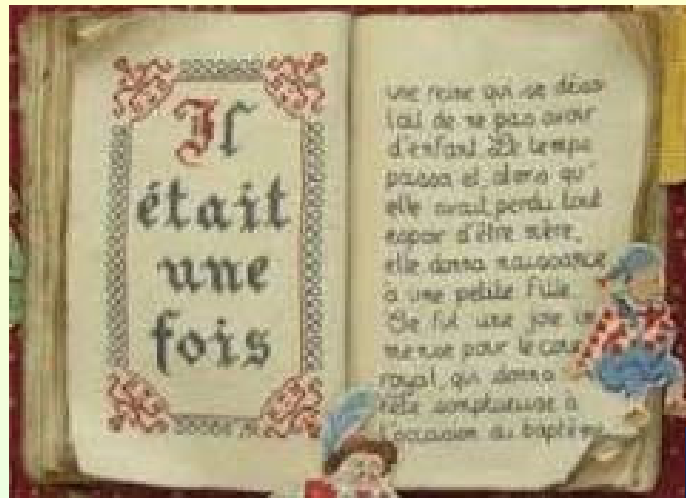 Il
était
une
fois
une reine qui se déso
lait de ne pas avoir
d'enfant. Le temps
passa et alors qu'
elle avait perdu tout
espoir d'être mère,
elle donna naissance
à une petite fille.
Ce fut une joie im
mense pour le couple
royal qui donna
fête somptueuse à
l'occasion du baptême